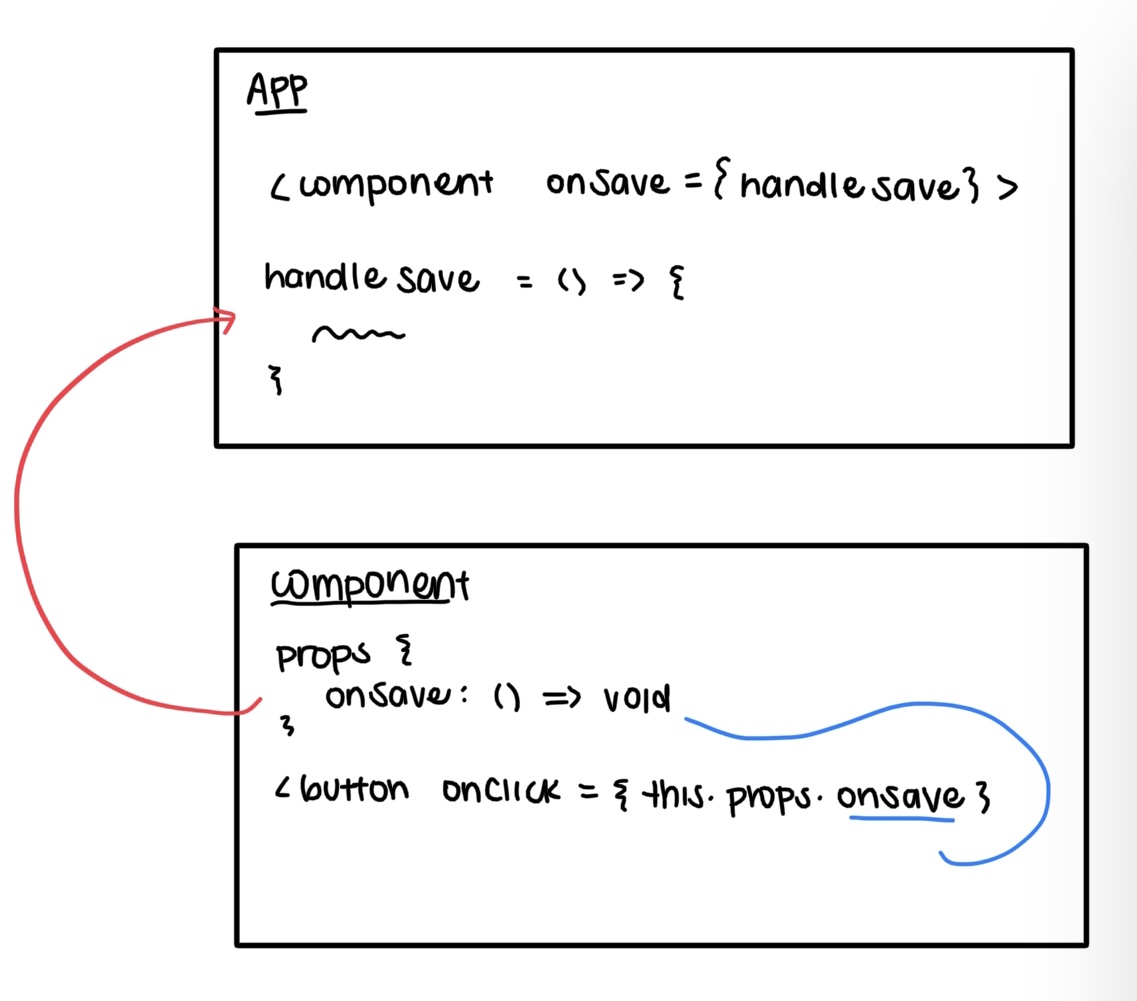 APP
<component onsave = { handlesave } >
handlesave = () => {
}
component
props {
onsave : () => void
}
<button onclick = { this.props.onsave }